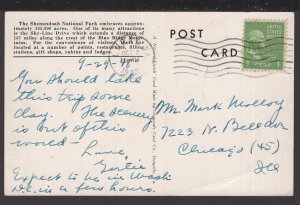 The Shenandoah National Park embraces approxi-
mately 193,000 acres. One of its many attractions
is the Sky-Line Drive which extends a distance of
107 miles along the crest of the Blue Ridge Moun-
tains. For the convenience of visitors, there are
located at a number of points, restaurants, filling
stations, gift shops, cabins and lodges.
POST
CARD
9-29-
You should take
this trip some
day. The scenery
is out of this
world —
Love,
Gertie
Expect to be in Wash
D.C. in a few hours.
Mr. Mark Molloy
7223 N. Bell
Chicago (45)
Ill